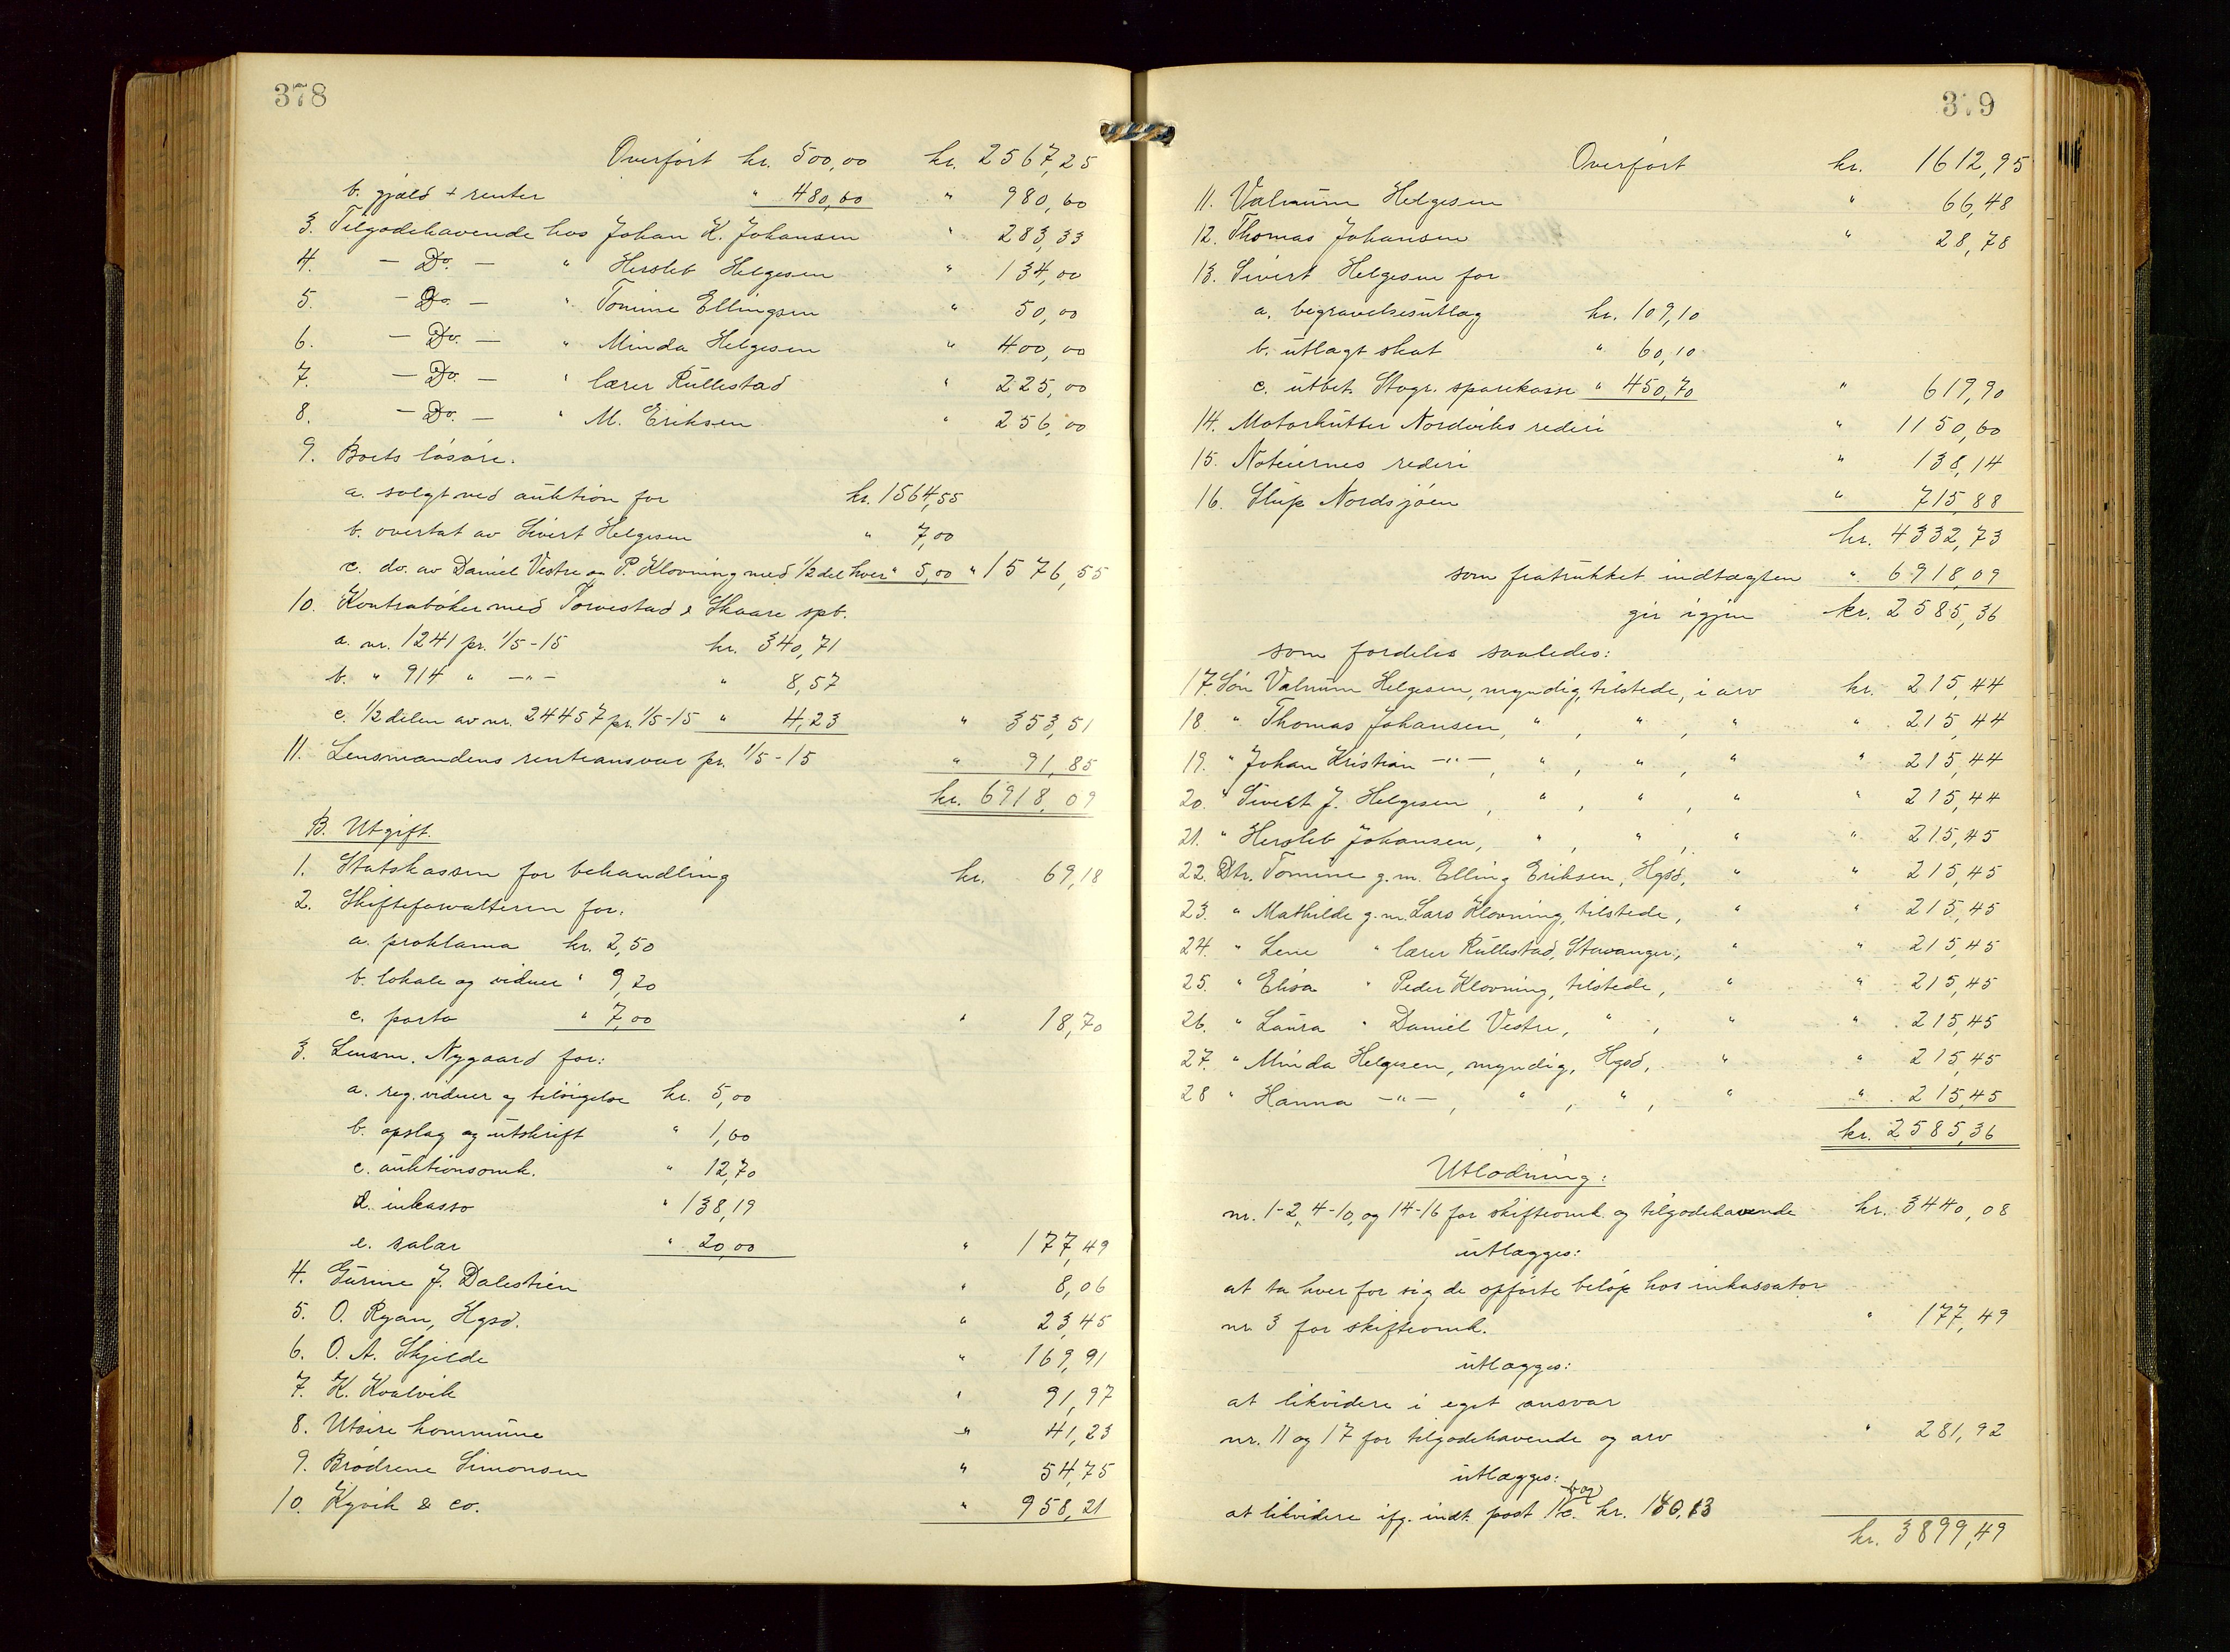 378
Overført kr. 500,00 kr. 2567,25
b. gjæld + renter " 480,60 " 980,60
3. Tilgodehavende hos Johan K. Johansen " 283,33
4. — Do. — " Hersleb Helgesen " 134,00
5. — Do. — " Tomine Ellingsen " 50,00
6. — Do. — " Minda Helgesen " 400,00
7. — Do. — " lærer Rullestad " 225,00
8. — Do. — " M. Eriksen " 256,00
9. Boets løsøre.
a. solgt ved auktion for kr. 1564,55
b. overtat av Sivert Helgesen " 7,00
c. do. av Daniel Vestre og P. Klovning med 1/2 del hver " 5,00 " 1576,55
10. Kontrabøker med Torvestad & Skaare spb.
a. nr. 1241 pr. 1/5-15 kr. 340,71
b. " 914 " —"— " 8,57
c. 1/2 delen av nr. 24457 pr. 1/5-15 " 4,23 " 353,51
11. Lensmandens renteansvar pr. 1/5-15 " 91,85
kr. 6918,09
B. Utgift.
1. Statskassen for behandling kr. 69,18
2. Skifteforvalteren for:
a. proklama kr. 2,50
b. lokale og vidner " 9,20
c. porto " 7,00 " 18,70
3. Lensm. Nygaard for:
a. reg. vidner og tilsigelse kr. 5,00
b. opslag og utskrift " 1,60
c. auktionsomk. " 12,70
d. inkasso " 138,19
e. salær " 20,00 " 177,49
4. Gurine J. Dalestien " 8,06
5. O. Ryan, Hgsd. " 23,45
6. O. A. Skjelde " 169,91
7. K. Kvalvik " 91,97
8. Utsire kommune " 41,23
9. Brødrene Simonsen " 54,75
10. Kyvik & co. " 958,21
379
Overført kr. 1612,95
11. Valnum Helgesen " 66,48
12. Thomas Johansen " 28,78
13. Sivert Helgesen for
a. begravelsesutlæg kr. 109,10
b. utlagt skat " 60,10
c. utbet. Stvgr. sparekasse " 450,70 " 619,90
14. Motorkutter Nordviks rederi " 1150,60
15. Noteiernes rederi " 138,14
16. Slup Nordsjøen " 715,88
kr. 4332,73
som fratrukket indtægten " 6918,09
gir igjen kr. 2585,36
som fordeles saaledes:
17. Søn Valnum Helgesen, myndig, tilstede, i arv kr. 215,44
18. " Thomas Johansen, " , " , " " 215,44
19. " Johan Kristian —"—, " , " , " " 215,44
20. " Sivert J. Helgesen, " , " , " " 215,44
21. " Hersleb Johansen, " , " , " " 215,45
22. Dtr. Tomine g.m. Elling Eriksen, Hgsd, " " 215,45
23. " Mathilde g.m. Lars Klovning, tilstede, " " 215,45
24. " Lene " lærer Rullestad, Stavanger, " " 215,45
25. " Elisa " Peder Klovning, tilstede, " " 215,45
26. " Laura " Daniel Vestre, " , " " 215,45
27. " Minda Helgesen, myndig, Hgsd, " " 215,45
28 " Hanna —"—, " , " , " " 215,45
kr. 2585,36
Utlodning:
nr. 1-2, 4-10, og 14-16 for skifteomk. og tilgodehavende kr. 3440,08
utlægges:
at ta hver for sig de opførte beløp hos inkassator
nr. 3 for skifteomk. " 177,49
utlægges:
at likvidere i eget ansvar
nr. 11 og 17 for tilgodehavende og arv " 281,92
utlægges:
at likvidere ifg. indt. post kr.
kr. 3899,49